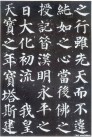 之行雖先天而不違
純如之心當後佛之
授記昔漢明永平之
日大化初流我皇
天寶之年寶塔斯建